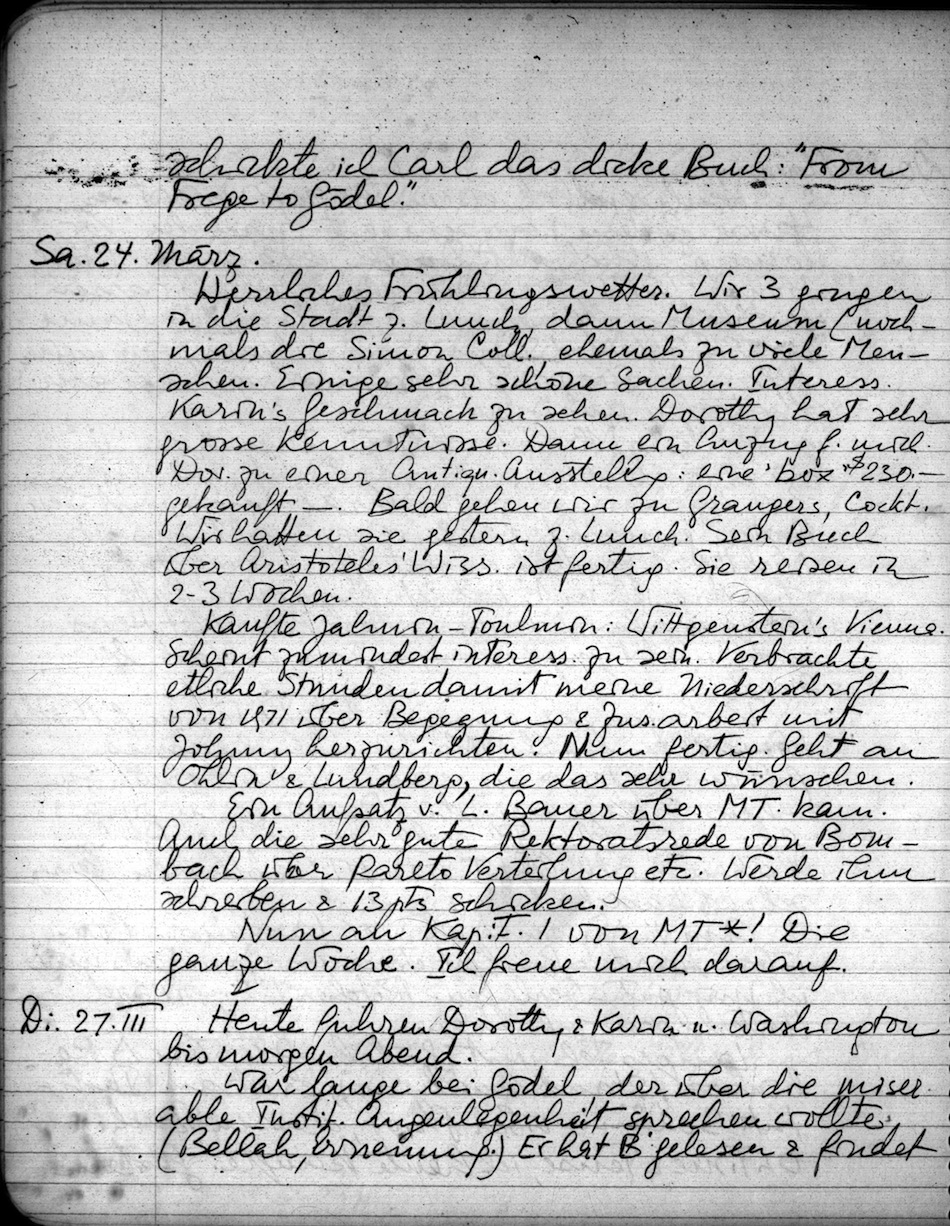 schickte ich Carl das dicke Buch: "From
Frege to Gödel."
Sa. 24. März.
Herrliches Frühlingswetter. Wir 3 gingen
in die Stadt z. Lunch, dann Museum (noch-
mals die Simon Coll. ehemals zu viele Men-
schen. Einige sehr schöne Sachen. Interess.
Karin's Geschmack zu sehen. Dorothy hat sehr
grosse Kenntnisse. Dann ein Anzug f. mich.
Dor. zu einer Antiqu. Ausstellg: eine 'box' $230.—
gekauft —. Bald gehen wir zu Grangers, Cockt.
Wir hatten sie gestern z. Lunch. Sein Buch
über Aristoteles' Wiss. ist fertig. Sie reisen in
2-3 Wochen.
Kaufte Janik–Toulmin: Wittgenstein's Vienna.
Scheint zumindest interess. zu sein. Verbrachte
etliche Stunden damit meine Niederschrift
von 1971 über Begegnung & Zus.arbeit mit
Johnny herzurichten. Nun fertig. Geht an
Ohlin & Lundberg, die das sehr wünschen.
Ein Aufsatz v. L. Bauer über MT. kam.
Auch die sehr gute Rektoratsrede von Bom-
bach über Pareto Verteilung etc. Werde ihm
schreiben & 13 pts schicken.
Nun an Kap. I. 1 von MT*! Die
ganze Woche. Ich freue mich darauf.
Di. 27. III Heute fuhren Dorothy & Karin n. Washington
bis morgen Abend.
War lange bei Gödel der über die miser
able Instit. Angenlegenheit sprechen wollte,
(Bellah, Ernennung.) Er hat B gelesen & findet